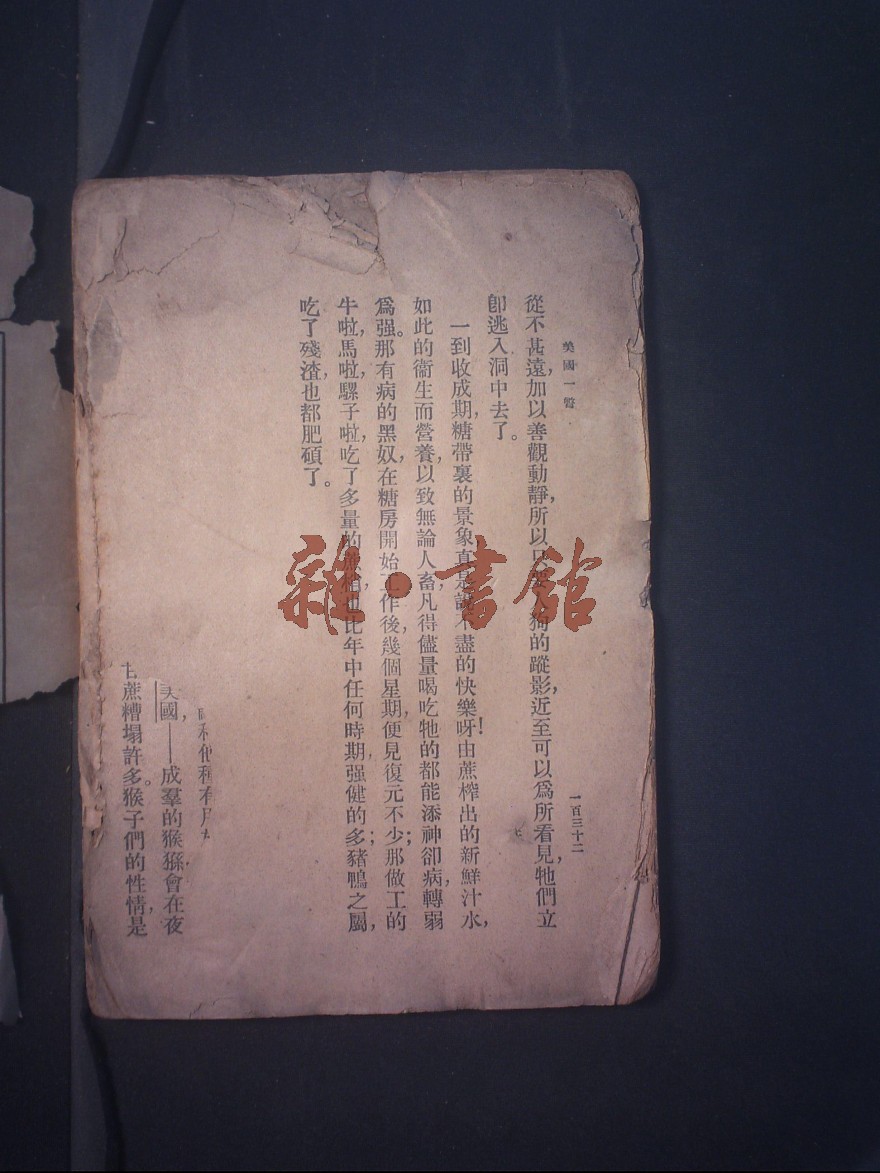 美國一瞥
一百三十二
從不甚遠，加以善觀動靜，所以只狗的蹤影，近至可以爲所看見，牠們立
卽逃入洞中去了。
一到收成期，糖帶裏的景象真是說不盡的快樂呀！由蔗榨出的新鮮汁水，
如此的衞生而營養，以致無論人畜，凡得儘量喝吃牠的，都能添神卻病，轉弱
爲强。那有病的黑奴，在糖房開始工作後，幾個星期，便見復元不少；那做工的
牛啦，馬啦，騾子啦，吃了多量的蔗比年中任何時期，强健的多；豬鴨之屬，
吃了殘渣，也都肥碩了。
和他種有
美國，——成羣的猴猻會在夜
甘蔗糟塌許多。猴子們的性情，是
雜·書館